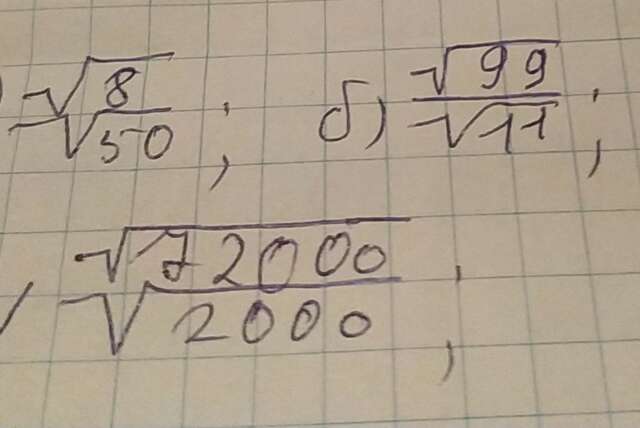 ) √8/√50 ; б) √99/√11 ;
√72000/√2000 ;